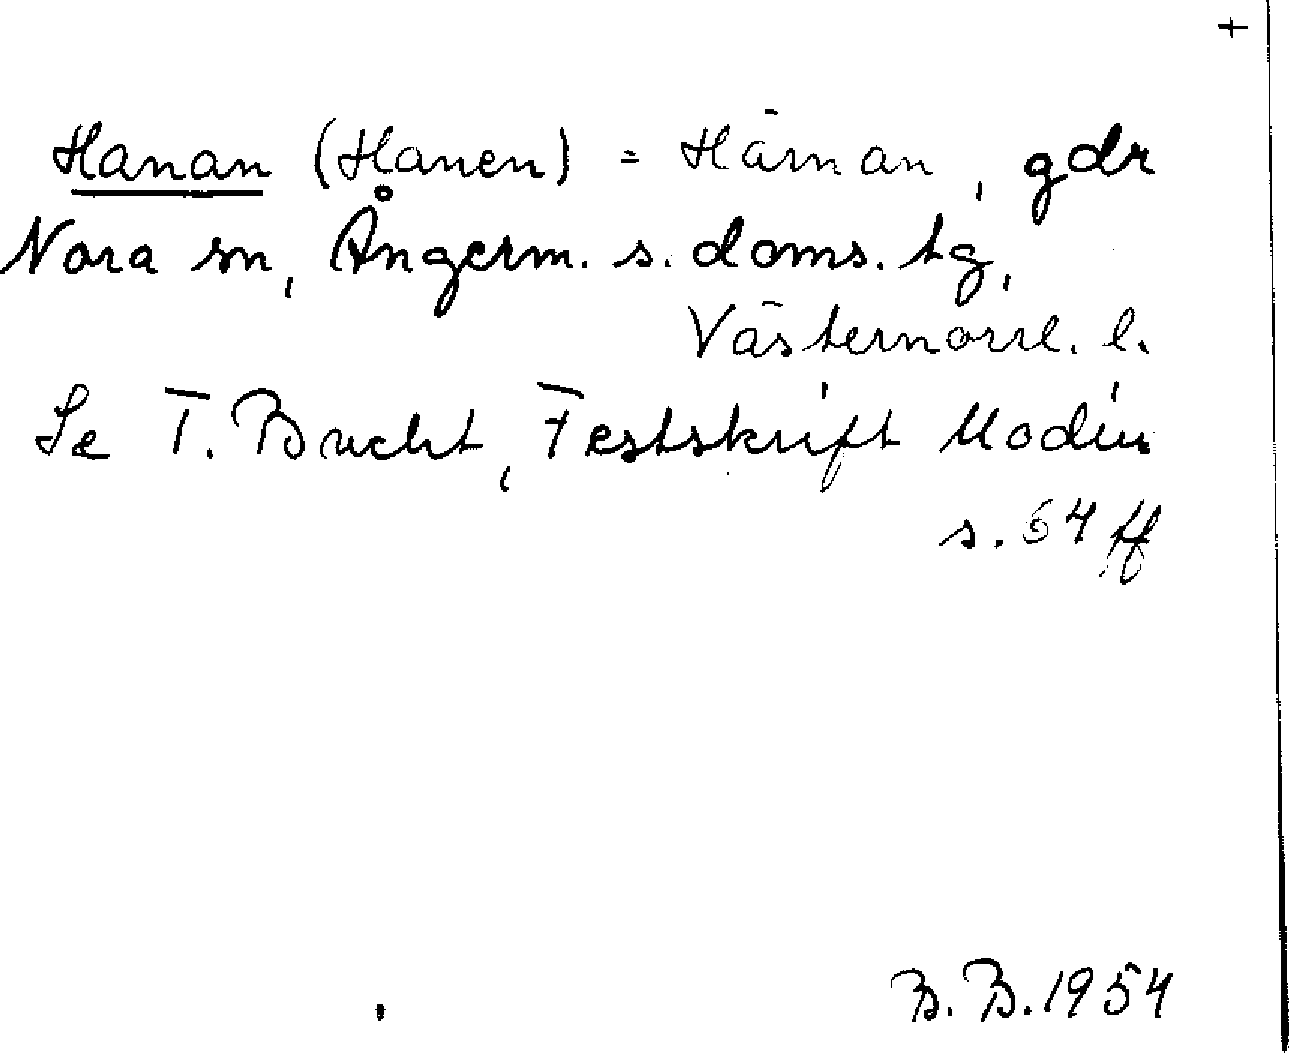 +
Hanan (Hanen) = Härnan, gdr
Nora sn, Ångerm. s. doms. tg,
Västernorrl. l.
Se T. Bucht, Festskrift Modin
s. 64 ff
B. B. 1954